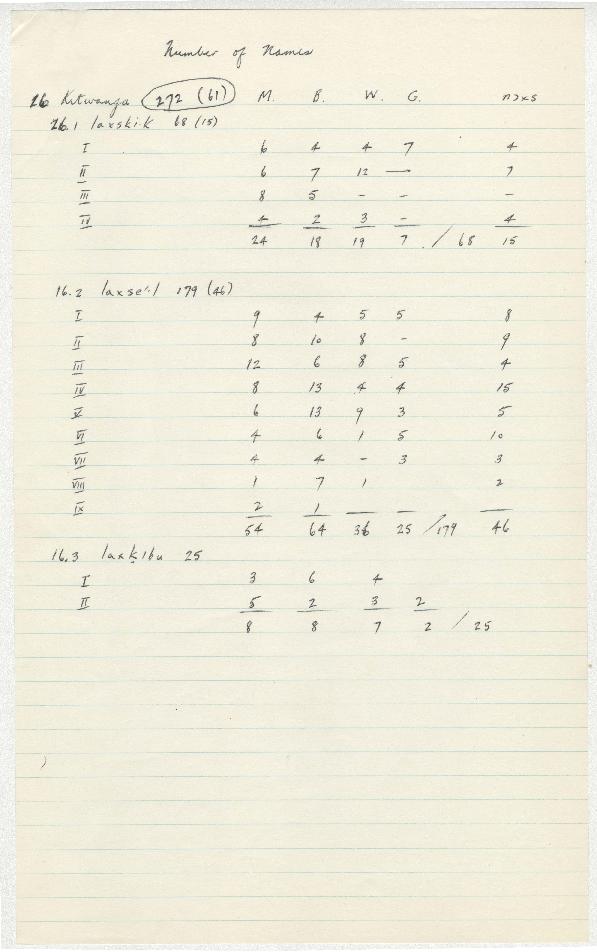 Number of Names
26 Kitwanga 272 (61) M. B. W. G. nɔxs
26.1 laxski·k 68 (15)
I 6 4 4 7 4
II 6 7 12 — 7
III 8 5 - - -
IV 4 2 3 - 4
24 18 19 7 / 68 15
16.2 laxse'l 179 (46)
I 9 4 5 5 8
II 8 10 8 - 9
III 12 6 8 5 4
IV 8 13 4 4 15
V 6 13 9 3 5
VI 4 6 1 5 10
VII 4 4 - 3 3
VIII 1 7 1 2
IX 2 1 — — —
54 64 36 25 / 179 46
16.3 laxḵibu 25
I 3 6 4
II 5 2 3 2
8 8 7 2 / 25